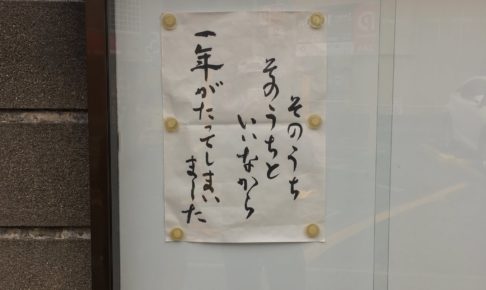 そのうち
そのうちと
いいながら
一年がたってしまい
ました